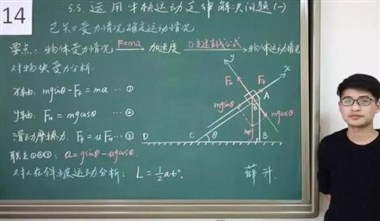 14
5.5 运用牛顿运动定律解决问题(一)
已知受力情况确定运动情况
要点: 物体受力情况 F=ma 加速度 匀变速公式 物体运动情况
对物块受力分析.
x轴: mgsinθ - Fμ = ma … ①
y轴: FN = mgcosθ … ②
滑动摩擦力 Fμ = μFN … ③
联立①②③: a = gsinθ - μgcosθ.
对A在斜面运动分析: L = ½at².
y
x
FN
Fμ
A
mgsinθ
mg
D
C
θ
B
薛升.